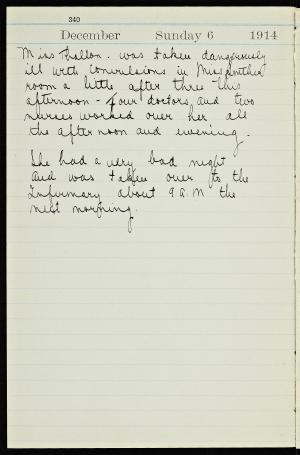 340
December Sunday 6 1914
Miss Thallon. was taken dangerously
ill with convulsions in Miss
room a little after three this
afternoon - Four doctors and two
nurses worked over her all
the afternoon and evening.
She had a very bad night
and was taken over to the
Infirmary about 9 A.M the
next morning.